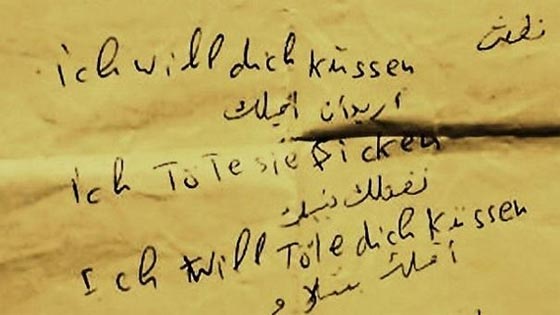 ich will dich küssen
اريد ان اقبلك
ich TöTe sie ficken
نقتلك
Ich will Töte dich Küssen